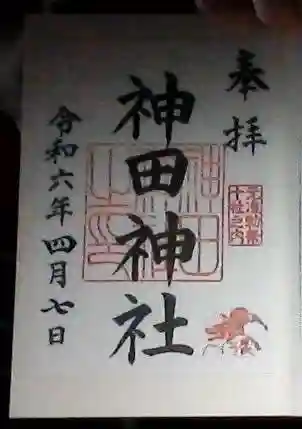 奉拝
神田神社
令和六年四月七日